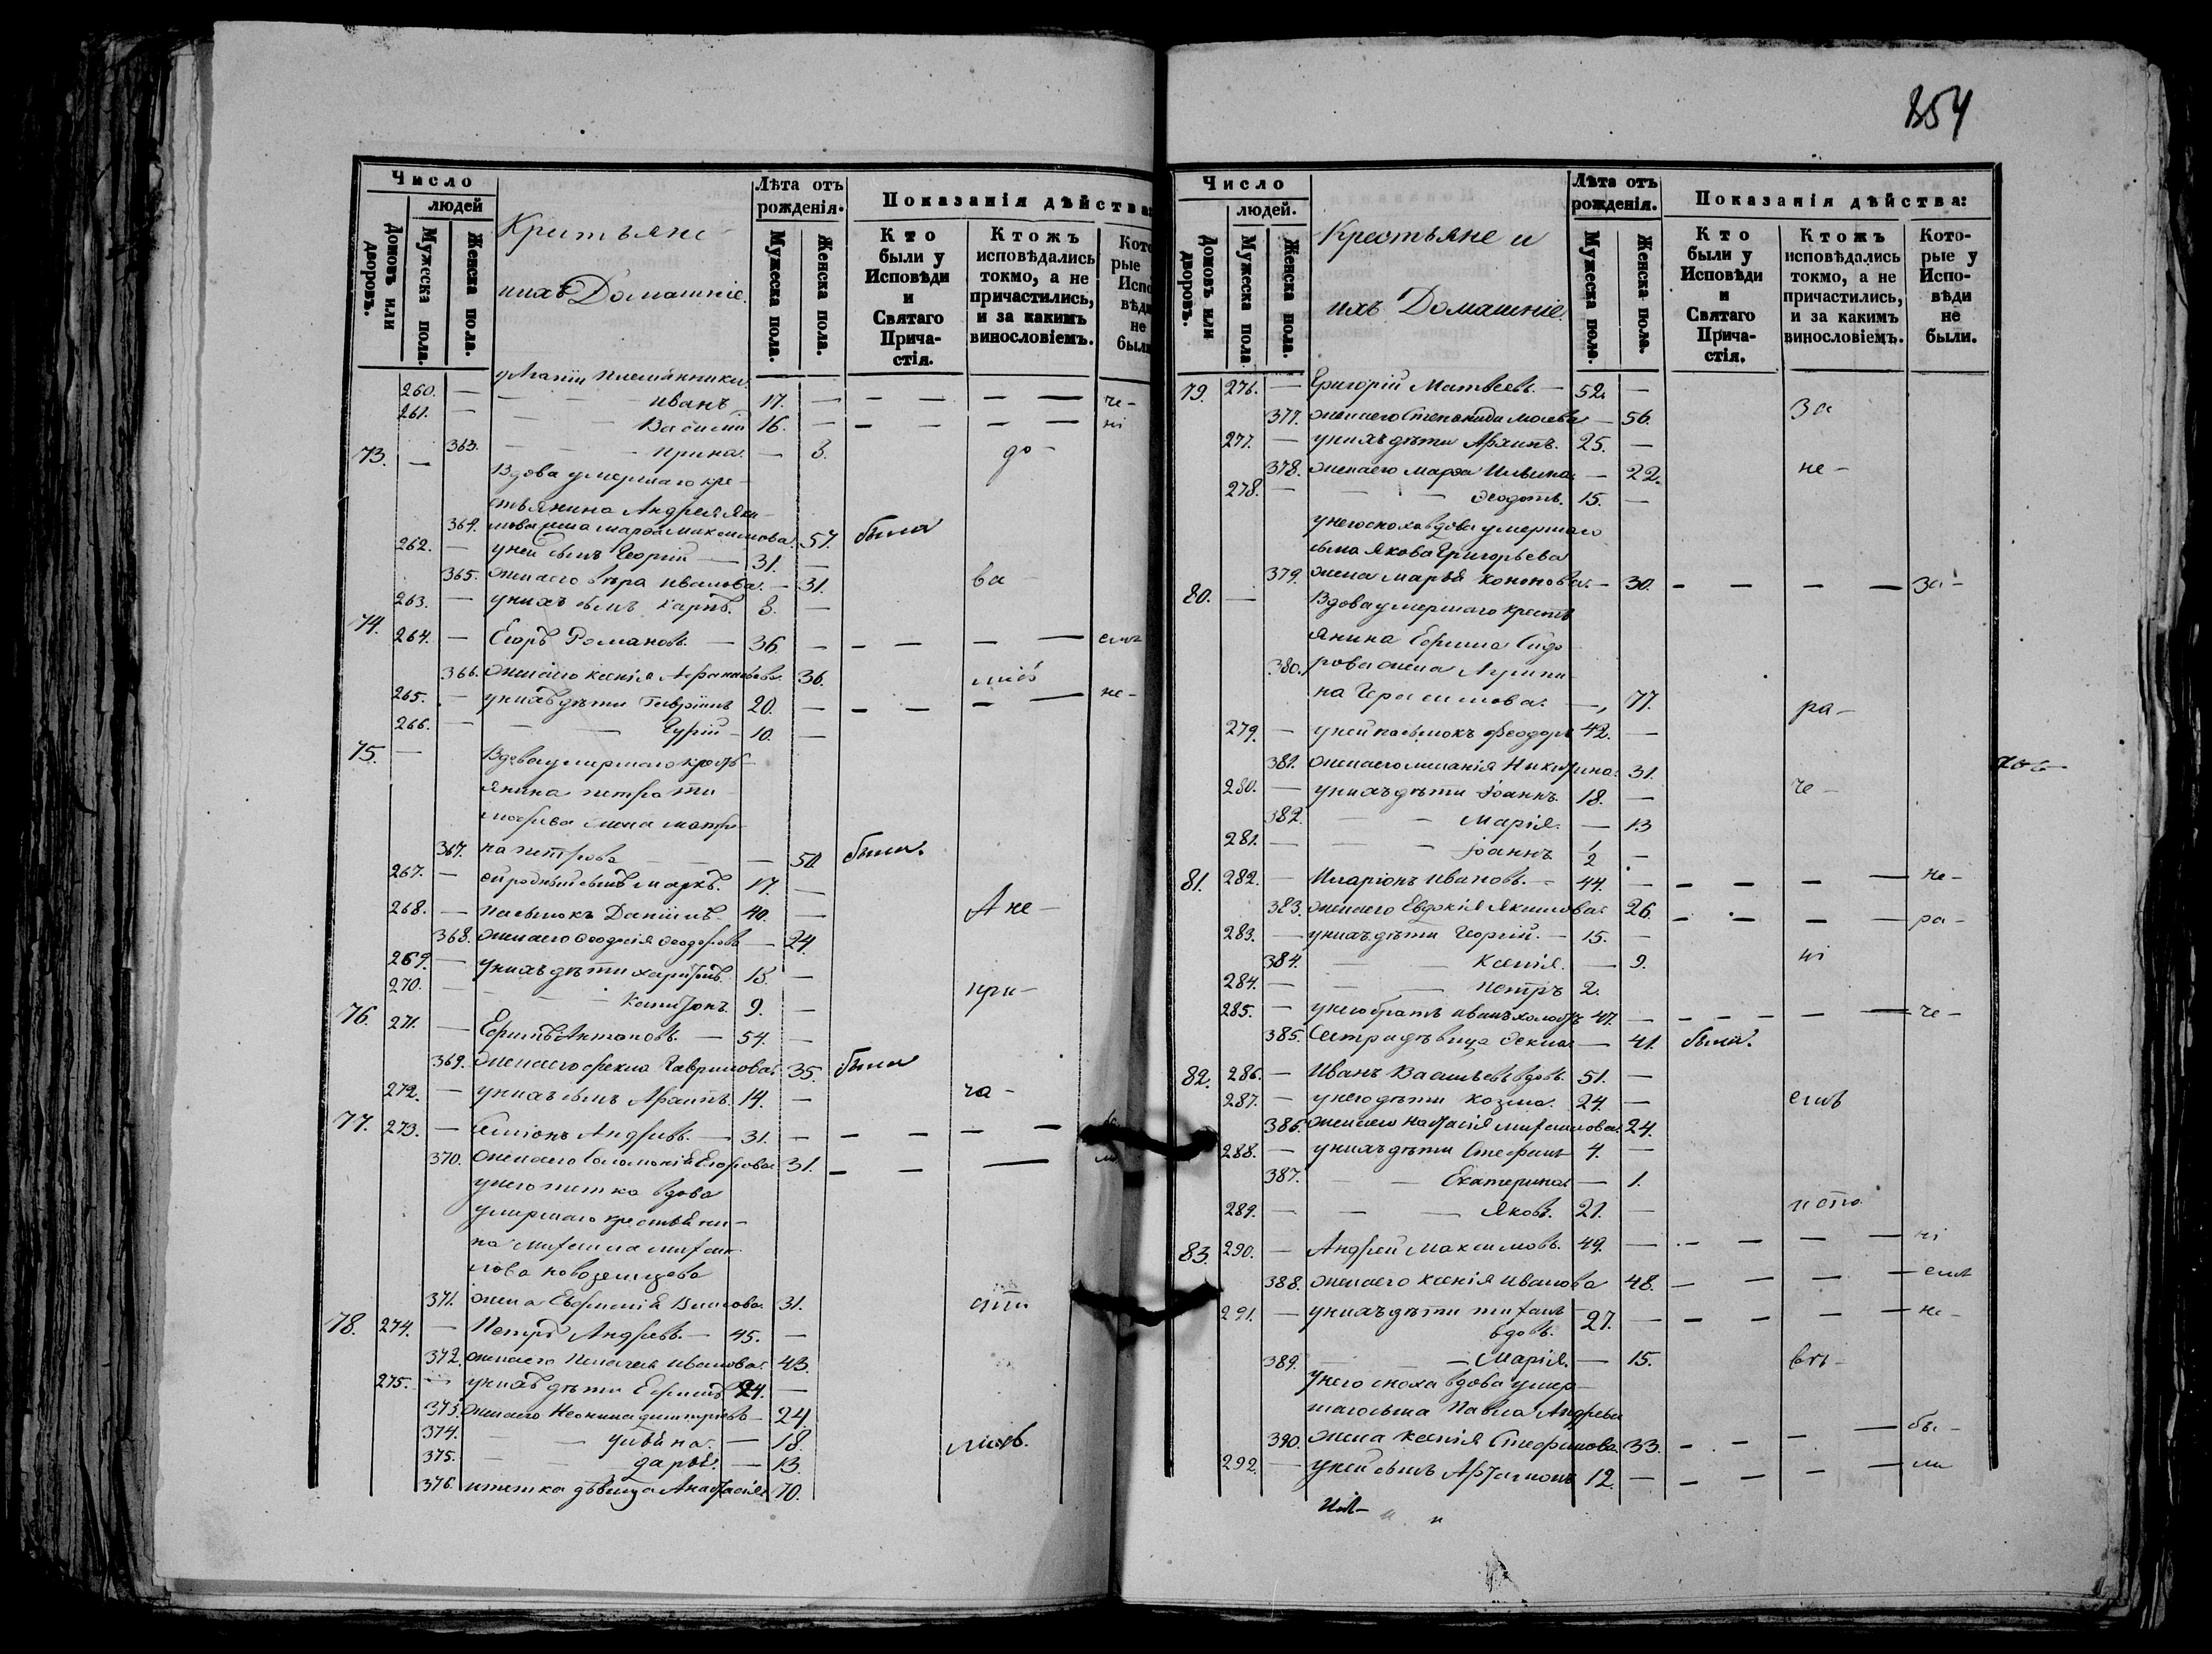 Число
людей
Домовъ или дворовъ.
Мужеска пола.
Женска пола.
Крестьяне
и ихъ Домашніе.
Лѣта отъ рожденія.
Мужеска пола.
Женска пола.
Показанія дѣйства:
Кто были у Исповѣди и Святаго Прича-стія.
Ктожъ исповѣдались токмо, а не причастились, и за какимъ винословіемъ.
260. — Иванъ 17. — — — — — че-
261. — Василій 16. — — — — — ні
363. — Ирина. — 8. до-
73. — Вдова умершаго кре-
стьянина Андрея Яки-
364. мова жена Марѳа Максимова. 57. была
262. — у ней сынъ Георгій — 31. —
365. жена его Вѣра Иванова. — 31. ва
263. — у нихъ сынъ Карпъ. 8. —
74. 264. — Егоръ Романовъ. — 36. — — — — — емъ
366. жена его Ксенія 36.
265. — у нихъ дѣти Гавріилъ 20. — — — — — не-
266. — — — Гурій — 10. —
75. — Вдова умершаго кресть-
янина Петра Ти-
мофеева жена Матре-
367. на Петрова — — — 50. была.
267. — ей родный сынъ Маркъ. 17. —
268. — пасынокъ Даніилъ. 40. — А не-
368. жена его Феодорова — 24.
269. — у нихъ дѣти Харитонъ. 13. —
270. — — — Капитонъ. 9. — при-
76. 271. — Ефимъ Антоновъ. — 54. —
369. жена его Фекла Гаврилова. 35. была
272. — у нихъ сынъ Архипъ. 14. — ча-
77. 273. — Симіонъ Андреевъ. — 31. — — — — —
370. жена его Соломонія Егорова 31. — — —
у него тетка вдова
умершаго крестьяни-
на Михаила Михаи-
лова Новоземцова
371. жена Евфимія 31.
78. 274. — Петръ Андреевъ. — 45. —
372. жена его Пелагея Иванова. 43.
275. — у нихъ дѣти Ефимъ 24. —
373. жена его Неонила Димитріева — 24.
374. — — Ульяна. — 18.
375. — — Дарья. — 13. ліовъ.
376. и тетка дѣвица Анастасія 70.
354
Число
людей.
Домовъ или дворовъ.
Мужеска пола
Женска пола.
Крестьяне и
ихъ Домашніе.
Лѣта отъ рожденія.
Мужеска пола.
Женска пола.
Показанія дѣйства:
Кто были у Исповѣди и Святаго Прича-стія.
Ктожъ исповѣдались токмо, а не причастились, и за какимъ винословіемъ.
Кото-рые у Испо-вѣди не были.
79. 276. — Григорій Матвеевъ. — 52. —
377. жена его Степанида — 56. за
277. — у нихъ дѣти Архипъ. 25. —
378. жена его Марѳа Ильина. — 22. не-
278. — — — Ѳеодотъ. 15. —
у него сноха вдова умершаго
сына Якова Григорьева
379. жена Марья Кононова. — 30. — — — — за-
80. — Вдова умершаго кресть
янина Ефима Сидо
380. рова жена Агрипи-
на Герасимова. — 77. ра-
279. — у ней пасынокъ Феодоръ 42. —
381. жена его Меланія Никитина. 31.
280. — у нихъ дѣти Іоаннъ. 18. — че-
382. — — Марія. — 13
281. — — — Іоаннъ. 1/2 —
81. 282. — Иларіонъ Ивановъ. — 44. — — — — — не-
383. жена его Евдокія Якимова. 26. — — — — ра-
283. — у нихъ дѣти Георгій. — 15. —
384. — — Ксенія. — 9. ні
284. — — — Петръ 2.
285. — у него братъ Иванъ холостъ 47. — — — — — че-
385. Сестра дѣвица Фекла — 41. была.
82. 286. — Иванъ Васильевъ вдовъ. 51. —
287. — у него дѣти Козма. 24. — емъ
386. жена его Настасія Михаилова. 24.
288. — у нихъ дѣти Стефанъ 4. —
387. — — Екатерина — 1.
289. — — — Яковъ. 21. —
83. 290. — Андрей Максимовъ. 49. — — — — — ні
388. жена его Ксенія Иванова 48. — — — — емъ
291. — у нихъ дѣти Михаилъ вдовъ. 27. — — — — — не-
389. — — — Марія. — 15.
У него сноха вдова умер-
шаго сына Павла Андреева
390. жена Ксенія Стефанова. 33. — — — — бы-
292. — у ней сынъ Артамонъ 12. — — — — — ли